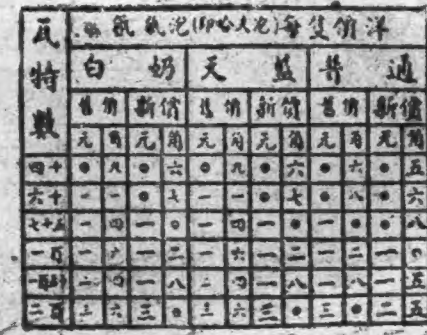 氣泡(即哈夫泡)每隻價洋
瓦特數
白奶 天藍 普通
售價 新價 售價 新價 售價 新價
元 角 元 角 元 角 元 角 元 角 元 角
四十 ● 九 ● 六 ● 九 ● 六 ● 六 ● 五
六十 一 一 ● 七 一 一 ● 七 ● 八 ● 六
七十五 一 四 一 ● 一 四 一 ● 一 ● ● 八
一百 一 六 一 二 一 六 一 二 一 二 一 ●
一百五十 二 四 一 八 二 四 一 八 一 八 一 五
二百 三 六 三 ● 三 六 三 ● 三 ● 二 五